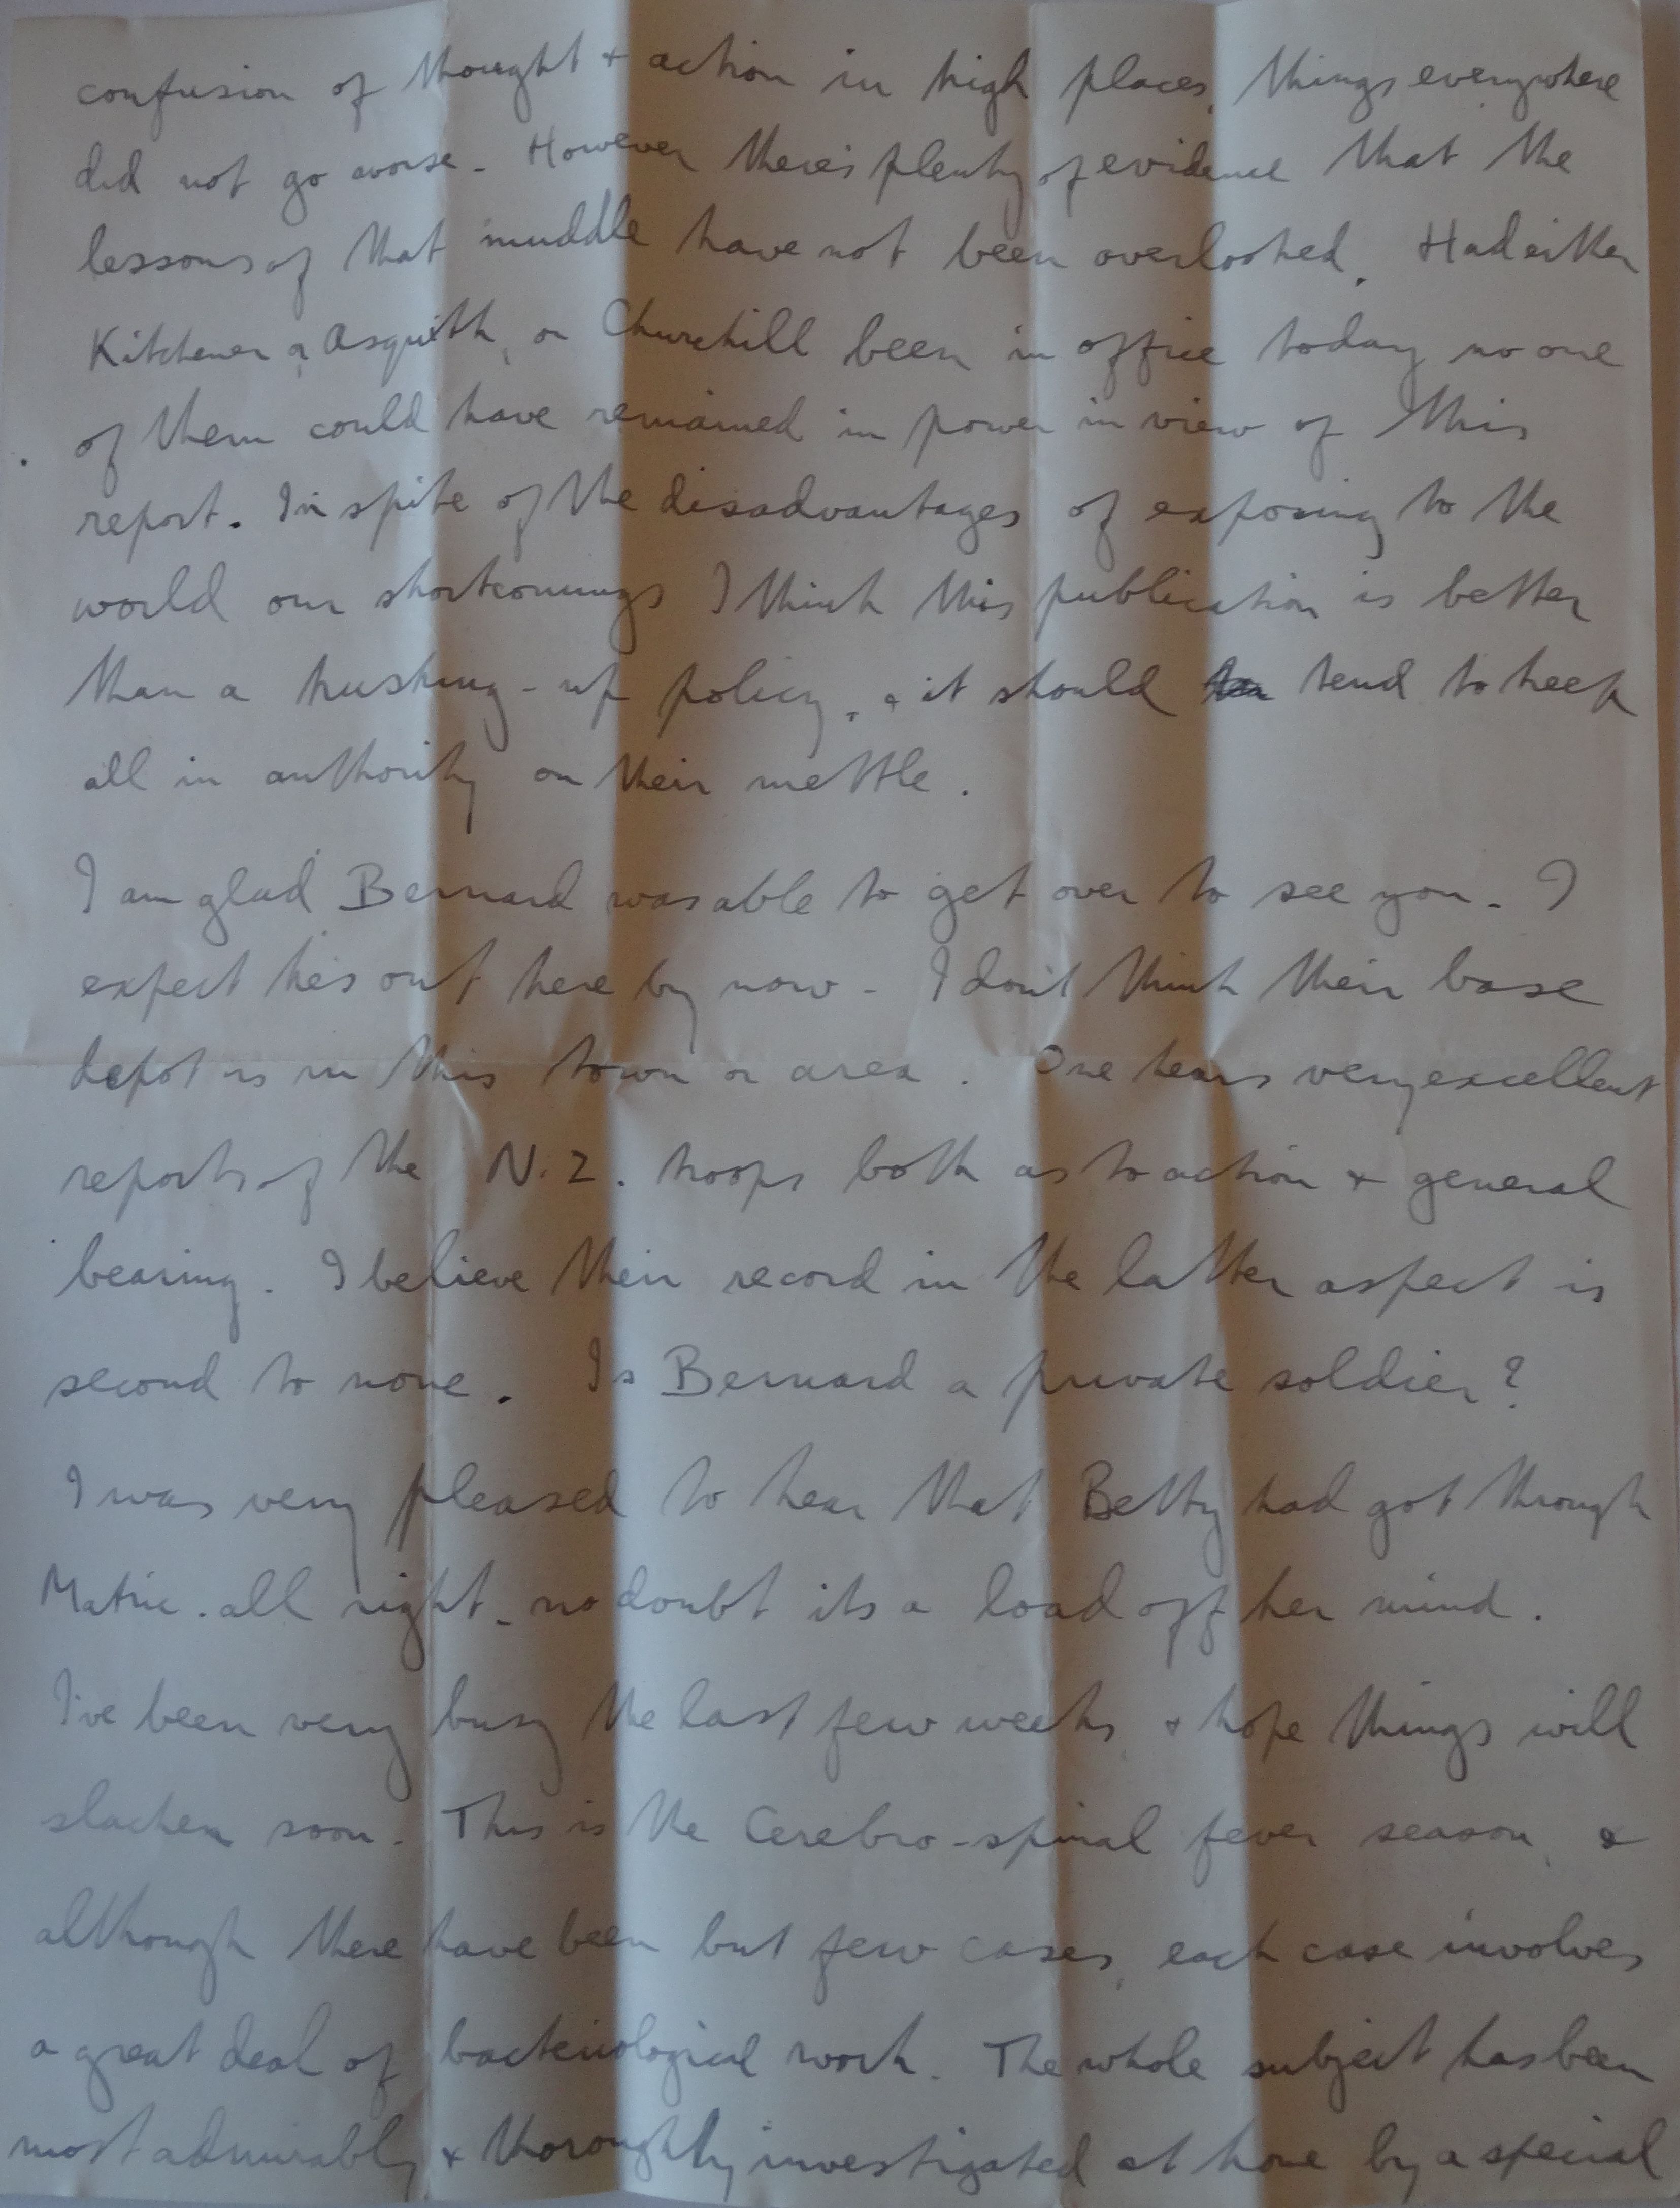 confusion of thought & action in high places, things everywhere
did not go worse. However there's plenty of evidence that the
lessons of that muddle have not been overlooked. Had either
Kitchener or Asquith, or Churchill been in office today no one
of them could have remained in power in view of this
report. In spite of the disadvantages of exposing to the
world our shortcomings I think this publication is better
than a hushing-up policy, & it should tend to keep
all in authority on their mettle.
I am glad Bernard was able to get over to see you. I
expect he's out here by now - I don't think their base
depot is in this town or area. One hears very excellent
reports of the N.Z. troops both as to action & general
bearing. I believe their record in the latter aspect is
second to none. Is Bernard a private soldier?
I was very pleased to hear that Betty had got through
Matric. all right - no doubt its a load off her mind.
I've been very busy the last few weeks, & hope things will
slacken soon. This is the Cerebro-spinal fever season, &
although there have been but few cases, each case involves
a great deal of bacteriological work. The whole subject has been
most admirably & thoroughly investigated at home by a special